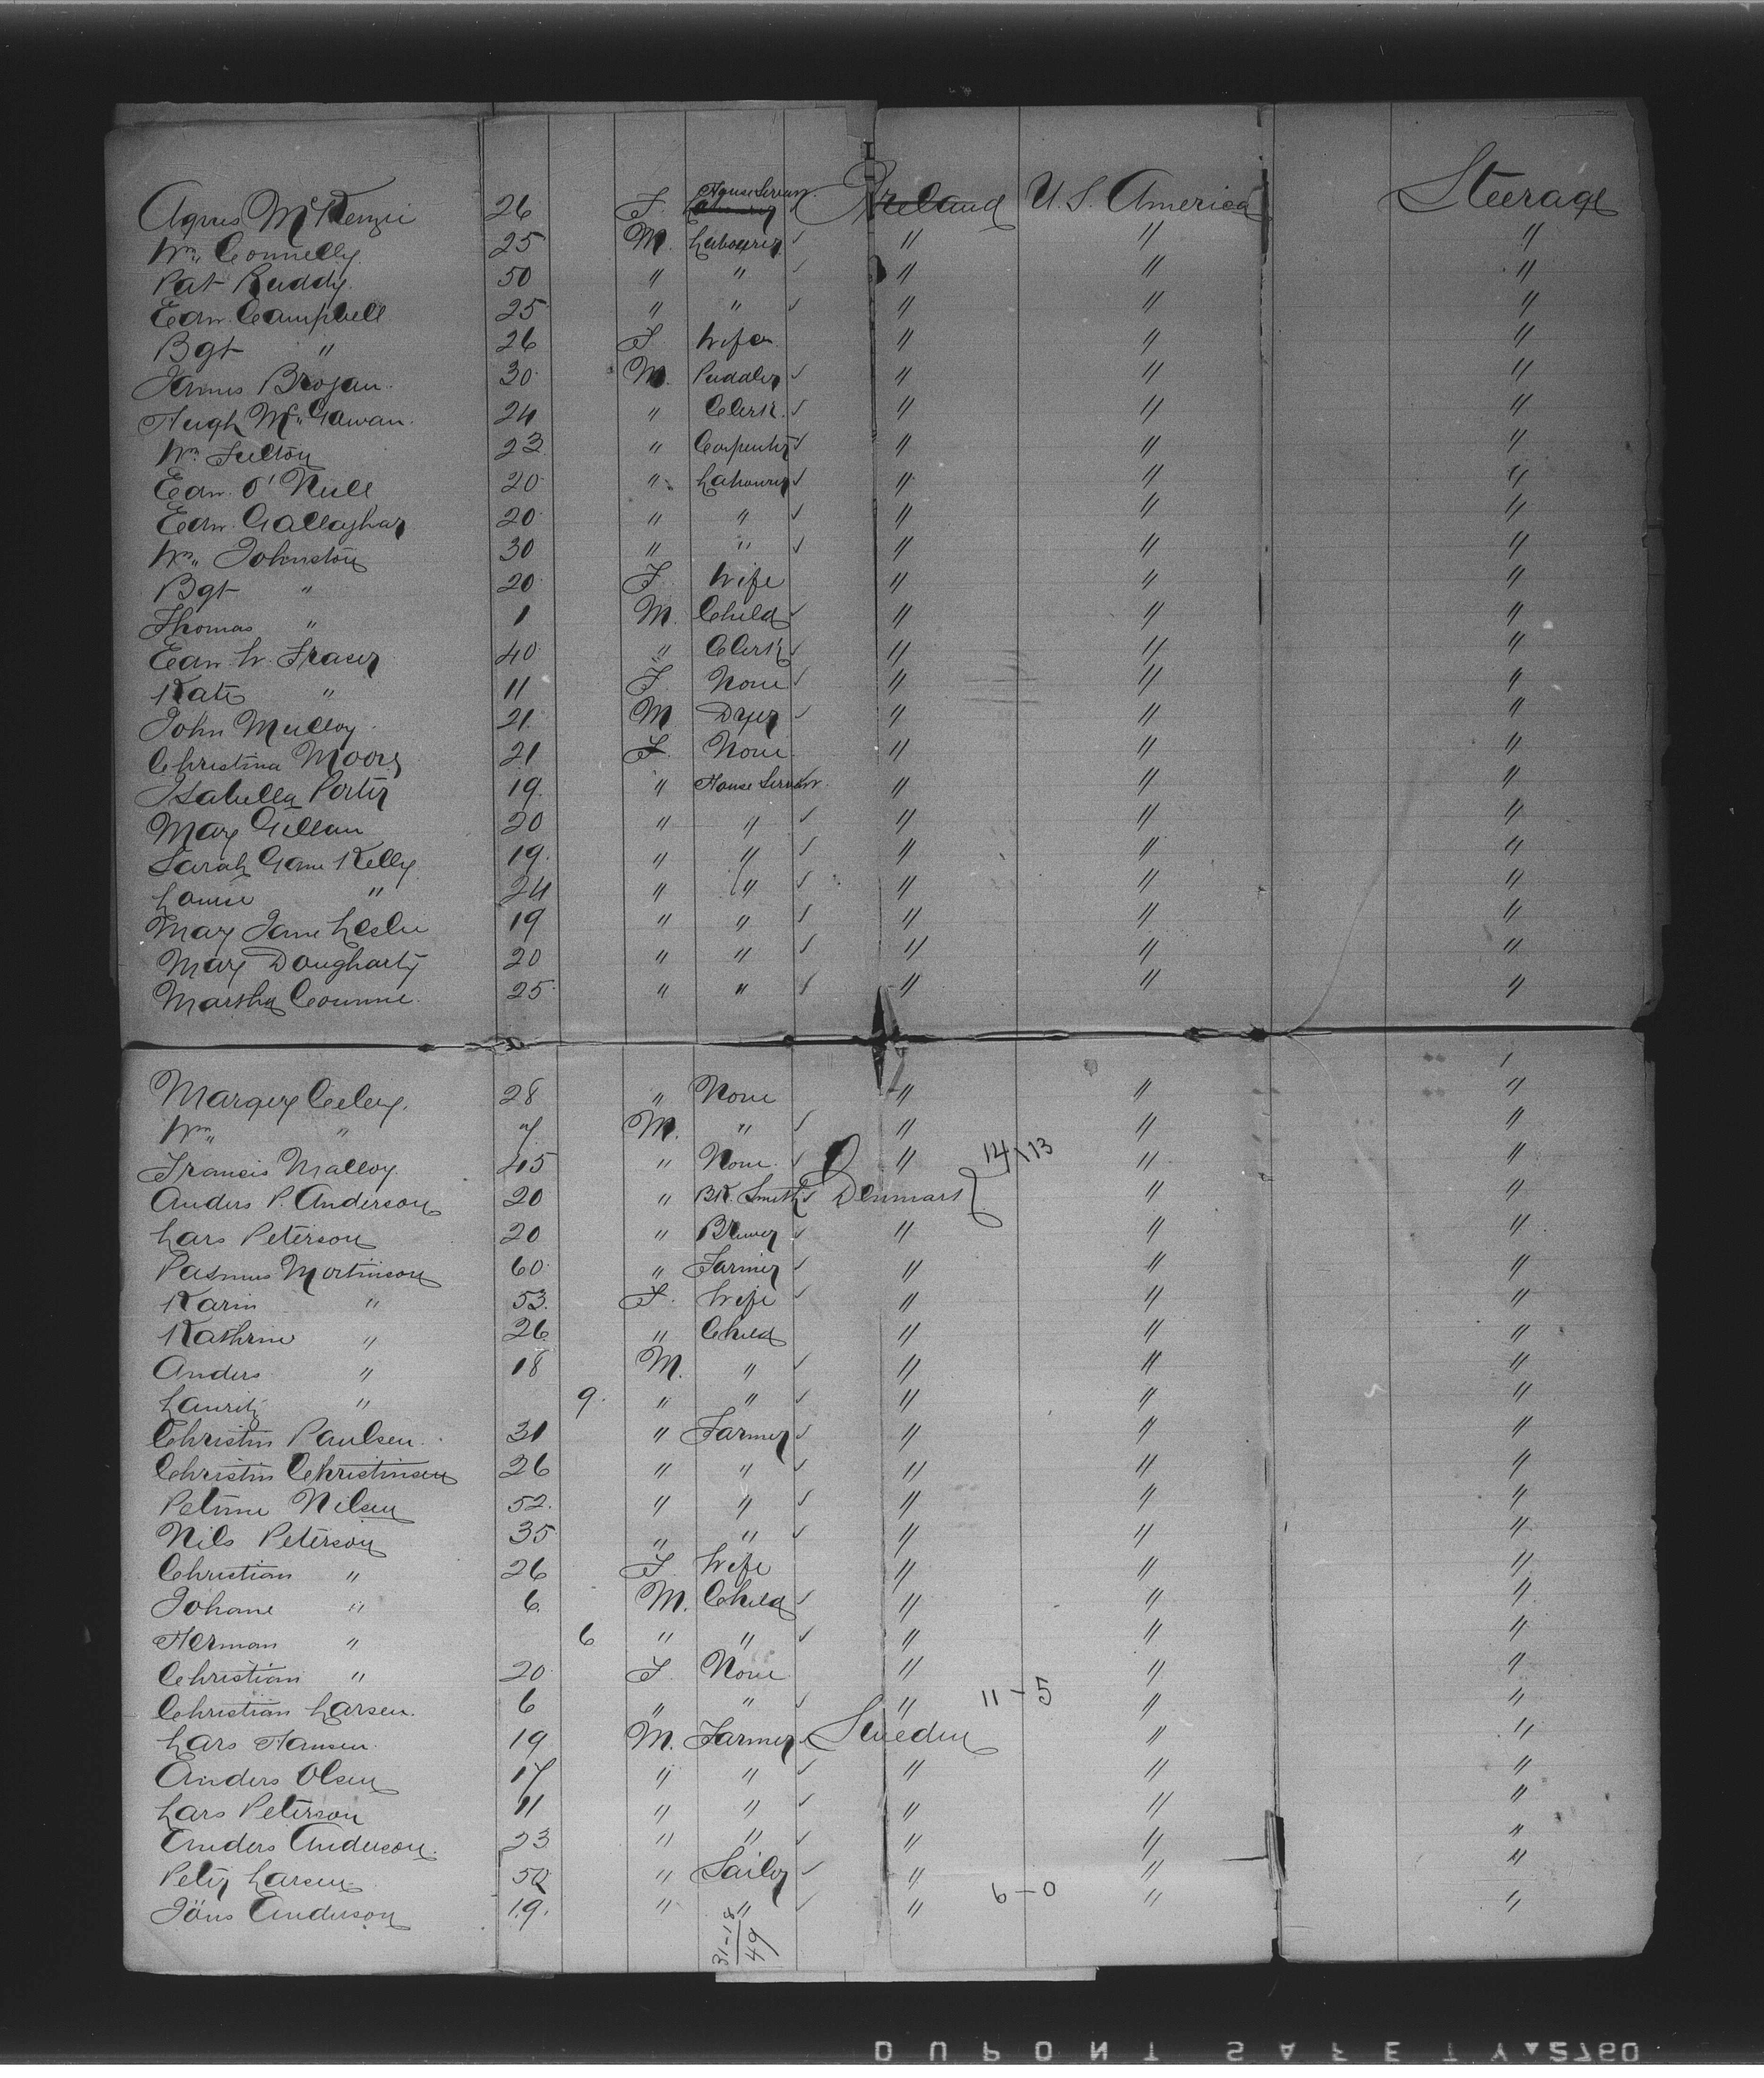 Agnes McKenzie 26 F. House Servan. Ireland U.S. America Steerage
Wm. Connelly 25 M. Labourer " " "
Pat Ruddy 50 " " " " "
Edw. Campbell 25 " " " " "
Bgt " 26 F Wife " " "
James Brogan 30 M. Puddler " " "
Hugh McGowan 24 " Clerk " " "
Wm Fulton 23 " Carpenter " " "
Edw. O'Neill 20 " Labourer " " "
Edw. Gallaghar 20 " " " " "
Wm. Johnston 30 " " " " "
Bgt " 20 F. Wife " " "
Thomas " 1 M. Child " " "
Edw. W. Fraser 40 " Clerk " " "
Kate " 11 F None " " "
John Mulloy 21 M Dyer " " "
Christina Moore 21 F. None " " "
Isabella Porter 19 " House Servan. " " "
Mary Gillan 20 " " " " "
Sarah Jane Kelly 19 " " " " "
Louise " 24 " " " " "
Mary Jane Leslie 19 " " " " "
Mary Dougharty 20 " " " " "
Martha 25 " " " " "
Margery 28 " None " " "
Wm. " 7 M. " " " "
Francis Malloy 45 " None " 14 \ 13 " "
Anders P. Anderson 20 " Bk. Smith Denmark " "
Lars Peterson 20 " Brewer " " "
Rasmus Mortinson 60 " Farmer " " "
Karin " 53 F. Wife " " "
Kathrine " 26 " Child " " "
Anders " 18 M. " " " "
Lauritz " 9 " " " " "
Christin Paulsen 31 " Farmer " " "
Christin Christinsen 26 " " " " "
Petrine Nilsen 52 " " " " "
Nils Peterson 35 " " " " "
Christian " 26 F. Wife " " "
Johane " 6 M. Child " " "
Herman " 6 " " " " "
Christian " 20 F. None " " "
Christian Larsen 6 " " " 11 - 5 " "
Lars Hansen 19 M. Farmer Sweden " "
Anders Olsen 17 " " " " "
Lars Peterson 11 " " " " "
Anders Anderson 23 " " " " "
Peter Larsen 50 " Sailor " " "
Jöns Anderson 19 " " " 6 - 0 " "
31-18
49
DUPONT SAFETY 2760